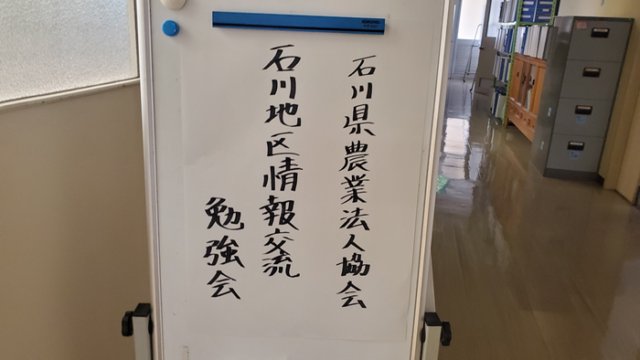 石川県農業法人協会
石川地区情報交流
勉強会